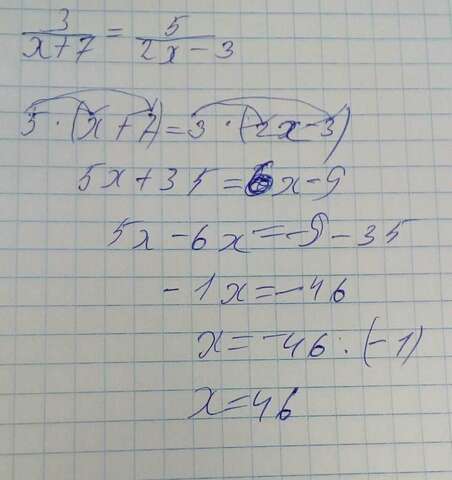 3/(x+7) = 5/(2x-3)
5·(x+7)=3·(2x-3)
5x+35=6x-9
5x-6x=-9-35
-1x=-46
x=-46:(-1)
x=46